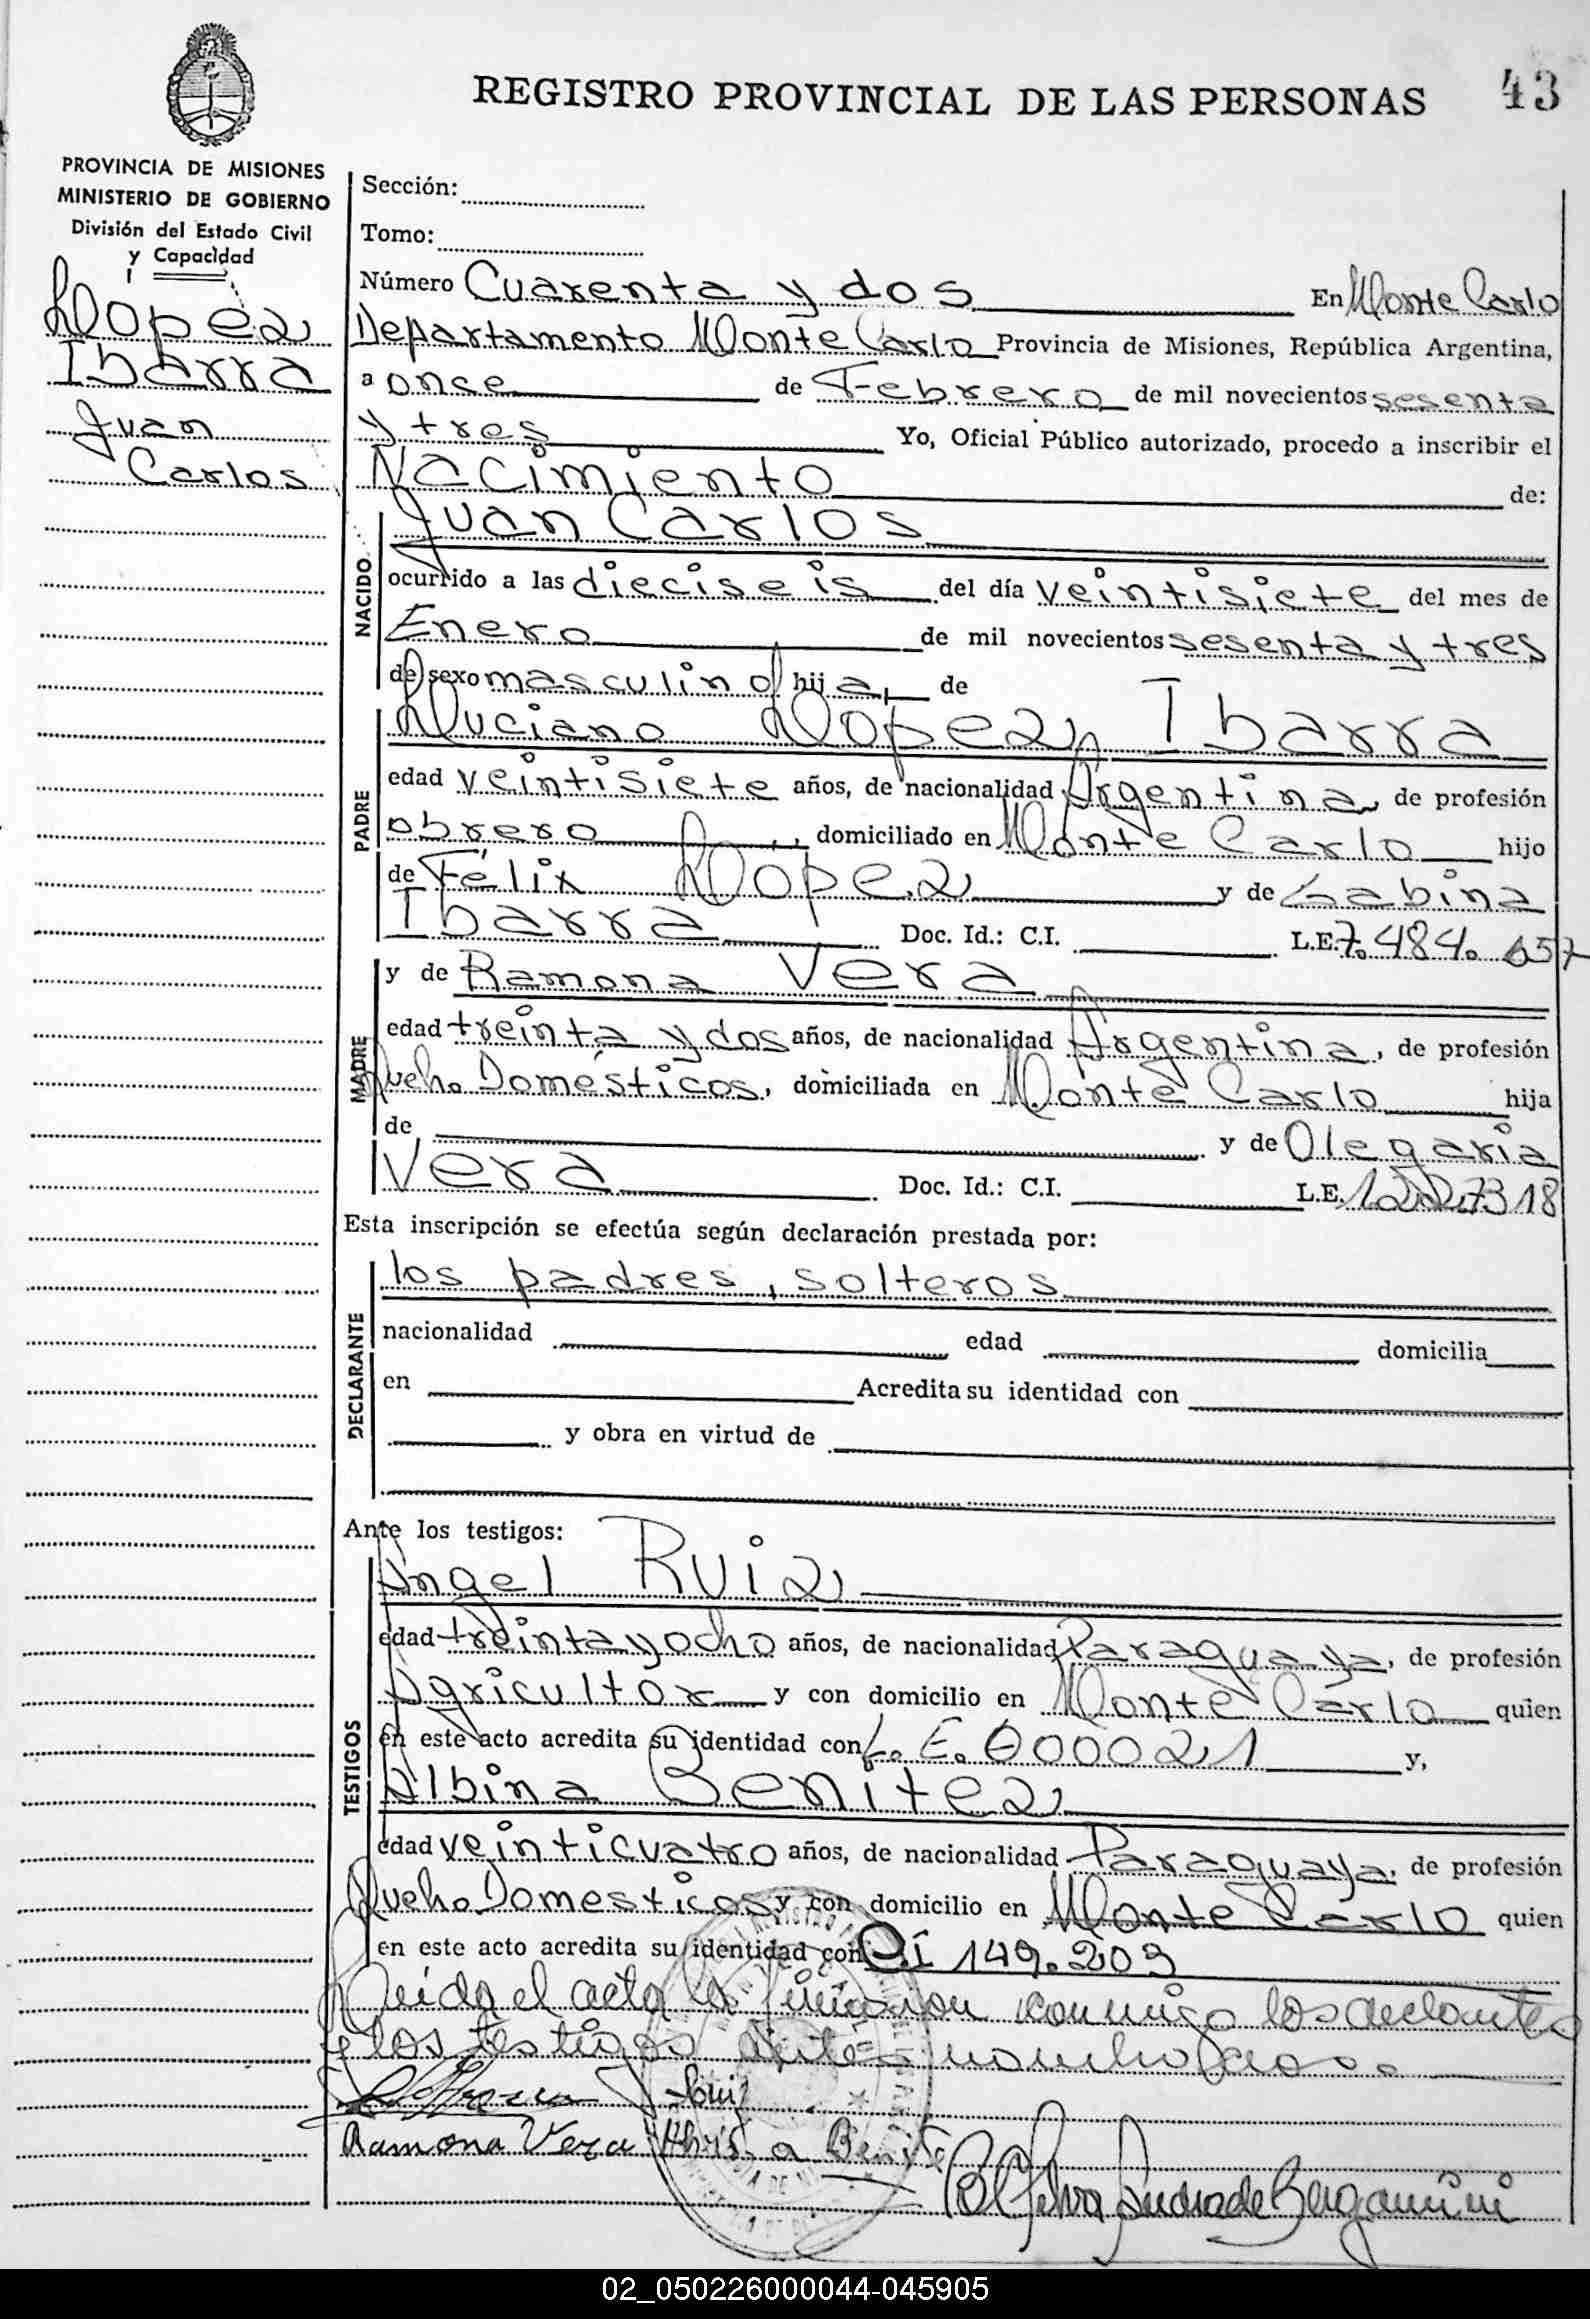 REGISTRO PROVINCIAL DE LAS PERSONAS 43
PROVINCIA DE MISIONES
MINISTERIO DE GOBIERNO
División del Estado Civil
y Capacidad
López
Ibarra
Juan
Carlos
Sección:
Tomo:
Número Cuarenta y dos En Monte Carlo
Departamento Monte Carlo Provincia de Misiones, República Argentina,
a once de Febrero de mil novecientos sesenta
y tres Yo, Oficial Público autorizado, procedo a inscribir el
Nacimiento de:
NACIDO
Juan Carlos
ocurrido a las dieciseis del día veintisiete del mes de
Enero de mil novecientos sesenta y tres
de sexo masculino hij a de
PADRE
Luciano Lopez Ibarra
edad veintisiete años, de nacionalidad Argentina, de profesión
obrero, domiciliado en Monte Carlo hijo
de Félix Lopez y de Sabina
Ibarra Doc. Id.: C.I. L.E. 7.484.657
MADRE
y de Ramona Vera
edad treinta y dos años, de nacionalidad Argentina, de profesión
Domésticos, domiciliada en Monte Carlo hija
de y de Olegaria
Vera Doc. Id.: C.I. L.E.
Esta inscripción se efectúa según declaración prestada por:
DECLARANTE
los padres, solteros
nacionalidad edad domicilia
en Acredita su identidad con
y obra en virtud de
Ante los testigos:
TESTIGOS
Angel Ruiz
edad treinta y ocho años, de nacionalidad Paraguaya, de profesión
Agricultor y con domicilio en Monte Carlo quien
en este acto acredita su identidad con L.E. 000021 y,
Albina Benítez
edad veinticuatro años, de nacionalidad Paraguaya, de profesión
Domesticos y con domicilio en Monte Carlo quien
en este acto acredita su identidad con CI 149.209
Leida el acta la firmaron conmigo los
y los testigos antes
Ramona Vera
02_050226000044-045905